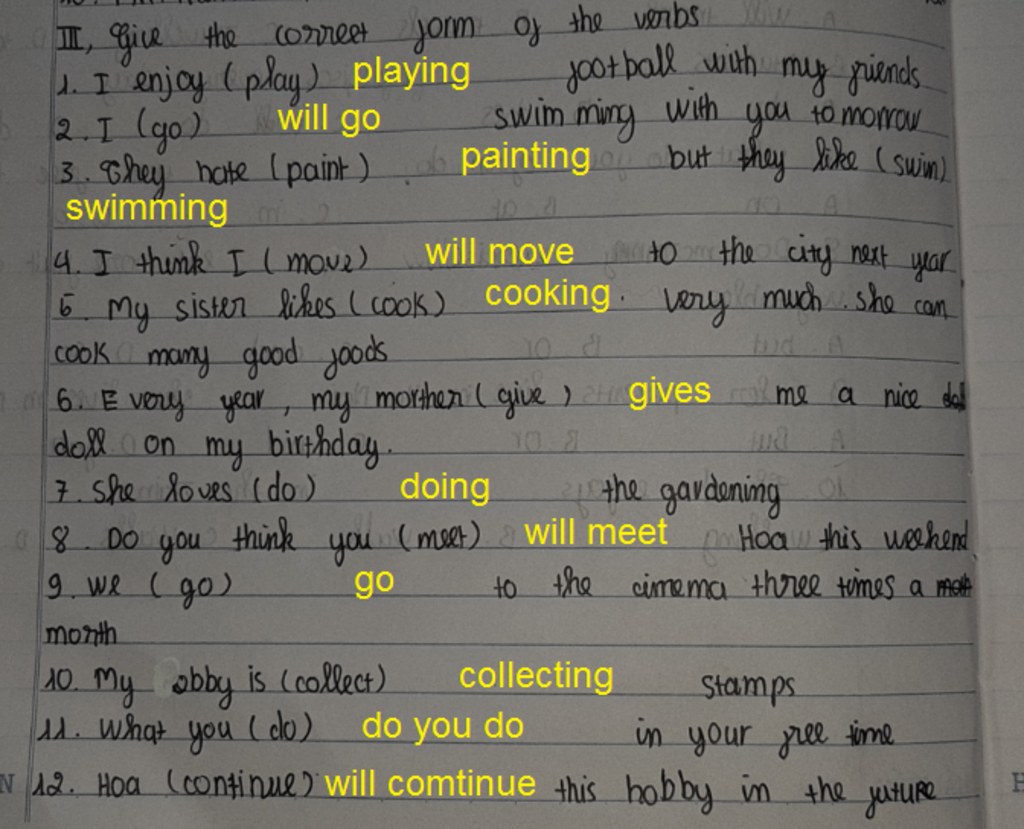 III, Give the correct form of the verbs
1. I enjoy (play) playing football with my friends
2. I (go) will go swimming with you tomorrow
3. They hate (paint) painting but they like (swim)
swimming
4. I think I (move) will move to the city next year
5. My sister likes (cook) cooking. very much. she can
cook many good foods
6. Every year, my morther (give) gives me a nice
doll on my birthday.
7. She loves (do) doing the gardening
8. Do you think you (meet) will meet Hoa this weekend
9. We (go) go to the cimema three times a
month
10. My obby is (collect) collecting stamps
11. What you (do) do you do in your free time
12. Hoa (continue) will comtinue this hobby in the future